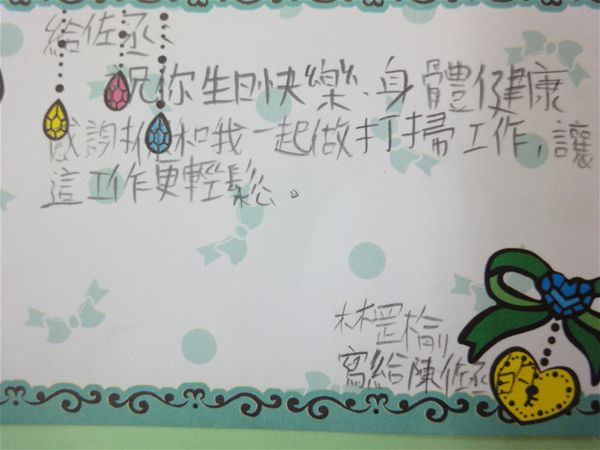 給佐丞、
祝你生日快樂、身體健康
感謝你和我一起做打掃工作,讓
這工作更輕鬆。
林罡榆
寫給陳佐丞的